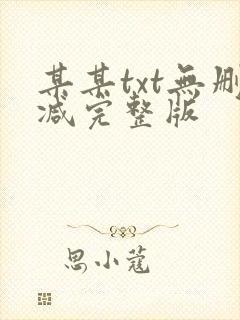 某某txt無刪
减完整版
思小蔻